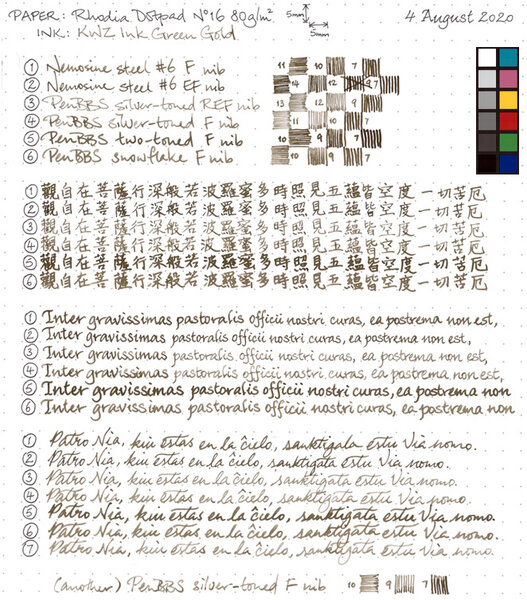 PAPER: Rhodia Dotpad Nº16 80g/m² 5mm 5mm 4 August 2020
INK: KWZ Ink Green Gold
① Nemosine steel #6 F nib 11 10 7
② Nemosine steel #6 EF nib
③ PenBBS silver-toned REF nib 13 12 9
④ PenBBS silver-toned F nib
⑤ PenBBS two-toned F nib
⑥ PenBBS snowflake F nib 10 9 7
① 觀自在菩薩行深般若波羅蜜多時照見五蘊皆空度一切苦厄
② 觀自在菩薩行深般若波羅蜜多時照見五蘊皆空度一切苦厄
③ 觀自在菩薩行深般若波羅蜜多時照見五蘊皆空度一切苦厄
④ 觀自在菩薩行深般若波羅蜜多時照見五蘊皆空度一切苦厄
⑤ 觀自在菩薩行深般若波羅蜜多時照見五蘊皆空度一切苦厄
⑥ 觀自在菩薩行深般若波羅蜜多時照見五蘊皆空度一切苦厄
① Inter gravissimas pastoralis officii nostri curas, ea postrema non est,
② Inter gravissimas pastoralis officii nostri curas, ea postrema non est,
③ Inter gravissimas pastoralis officii nostri curas, ea postrema non est,
④ Inter gravissimas pastoralis officii nostri curas, ea postrema non est,
⑤ Inter gravissimas pastoralis officii nostri curas, ea postrema non
⑥ Inter gravissimas pastoralis officii nostri curas, ea postrema non
① Patro Nia, kiu estas en la ĉielo, sanktigata estu Via nomo.
② Patro Nia, kiu estas en la ĉielo, sanktigata estu Via nomo.
③ Patro Nia, kiu estas en la ĉielo, sanktigata estu Via nomo.
④ Patro Nia, kiu estas en la ĉielo, sanktigata estu Via nomo.
⑤ Patro Nia, kiu estas en la ĉielo, sanktigata estu Via nomo.
⑥ Patro Nia, kiu estas en la ĉielo, sanktigata estu Via nomo.
⑦ Patro Nia, kiu estas en la ĉielo, sanktigata estu Via nomo.
(another) PenBBS silver-toned F nib 10 9 7